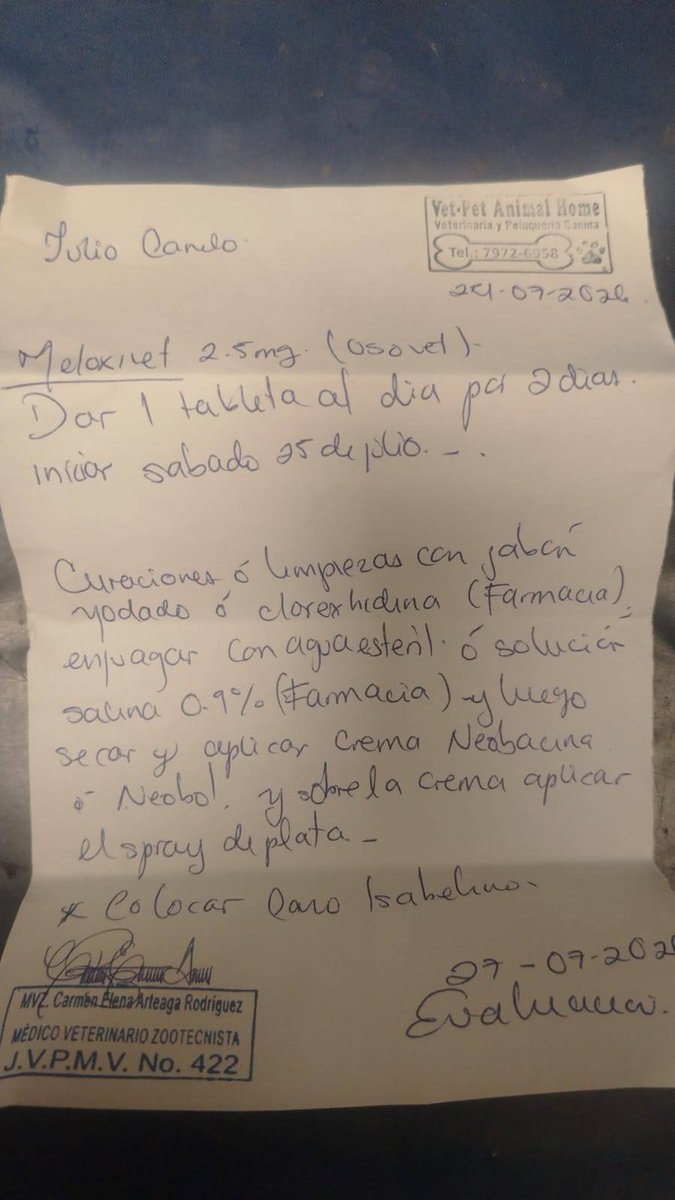 Vet-Pet Animal Home
Veterinaria y Peluquería Canina
Tel.: 7972-6958
Julio
24-07-2026.
Meloxivet 2.5mg. (Osovet).
Dar 1 tableta al dia por 2 dias.
iniciar sabado 25 de julio.-.
Curaciones ó limpiezas con jabón
yodado ó clorexhidina (Farmacia),
enjuagar con agua esteril. ó solución
salina 0.9% (Farmacia) y luego
secar y aplicar crema Neobacina
ó Neobol. y sobre la crema aplicar
el spray de plata -
* Colocar Cono Isabelino.
27-07-202
Evaluación.
MVZ. Carmen Elena Arteaga Rodríguez
MÉDICO VETERINARIO ZOOTECNISTA
J.V.P.M.V. No. 422